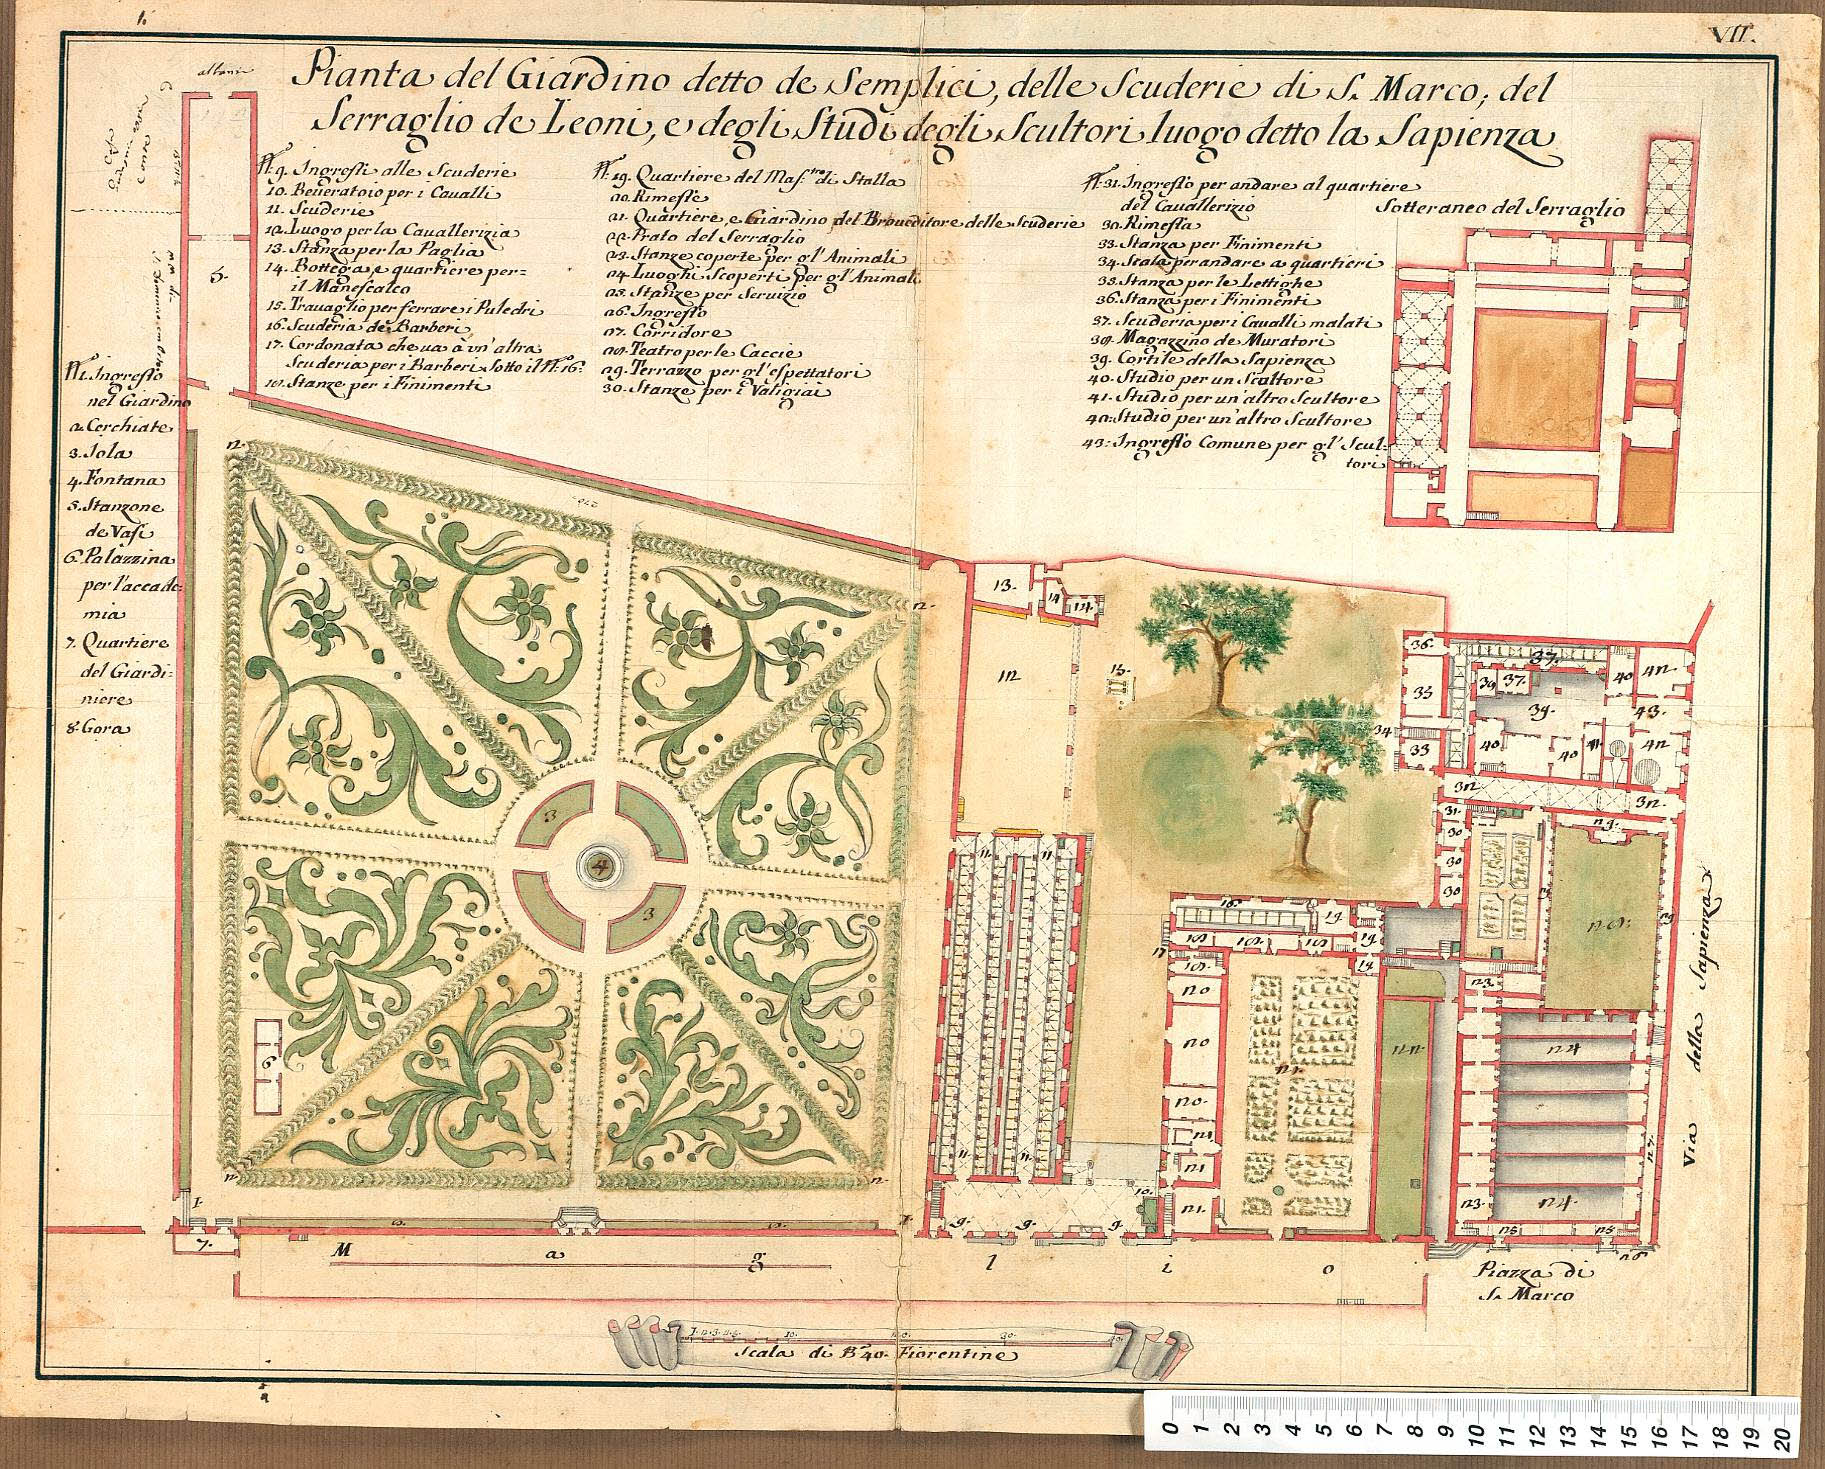 1.
VII.
Pianta del Giardino detto de Semplici, delle Scuderie di S. Marco, del
Serraglio de Leoni, e degli Studi degli Scultori luogo detto la Sapienza
N. 1. Ingresso
nel Giardino
2. Cerchiate
3. Isola
4. Fontana
5. Stanzone
de Vasi
6. Palazzina
per l'accade-
mia
7. Quartiere
del Giardi-
niere
8. Gora
N. 9. Ingressi alle Scuderie
10. Beveratoio per i Cavalli
11. Scuderie
12. Luogo per la Cavallerizia
13. Stanza per la Paglia
14. Bottega, e quartiere per=
il Manescalco
15. Travaglio per ferrare i Puledri
16. Scuderia de Barberi
17. Cordonata che va à un'altra
Scuderia per i Barberi sotto il N. 16.
18. Stanze per i Finimenti
N. 19. Quartiere del Mas.tro di Stalla
20. Rimesse
21. Quartiere, e Giardino del Proveditore delle Scuderie
22. Prato del Serraglio
23. Stanze coperte per gl'Animali
24. Luoghi Scoperti per gl'Animali
25. Stanze per Servizio
26. Ingresso
27. Corridore
28. Teatro per le Caccie
29. Terrazzo per gl'espettatori
30. Stanze per i Valigiai
N. 31. Ingresso per andare al quartiere
del Cavallerizio
32. Rimessa
33. Stanza per Finimenti
34. Scala per andare a quartieri
35. Stanza per le Lettighe
36. Stanza per i Finimenti
37. Scuderia per i Cavalli malati
38. Magazzino de Muratori
39. Cortile della Sapienza
40. Studio per un Scultore
41. Studio per un'altro Scultore
42. Studio per un'altro Scultore
43. Ingresso Comune per gl'Scul-
tori
Sotteraneo del Serraglio
5.
2.
2.
3
4
3
6
2.
2.
1.
7.
13.
14
14.
12
15.
11.
11.
11.
11.
9.
9.
9.
10.
16.
19.
17
18
18.
18
19.
19.
18.
20
20
20.
21
21
21.
21.
22.
36.
33
34
33
37.
38
37.
39.
40
42
43.
40
40
41
42
32
32.
31.
30
30
30
29.
29
28.
23.
24
24.
23.
27.
25
25
26
Via della Sapienza
M a g l i o
Piazza di
S. Marco
1. 2. 3. 4. 5. 10. 20. 30. 40.
Scala di B.a 40. Fiorentine
0 1 2 3 4 5 6 7 8 9 10 11 12 13 14 15 16 17 18 19 20